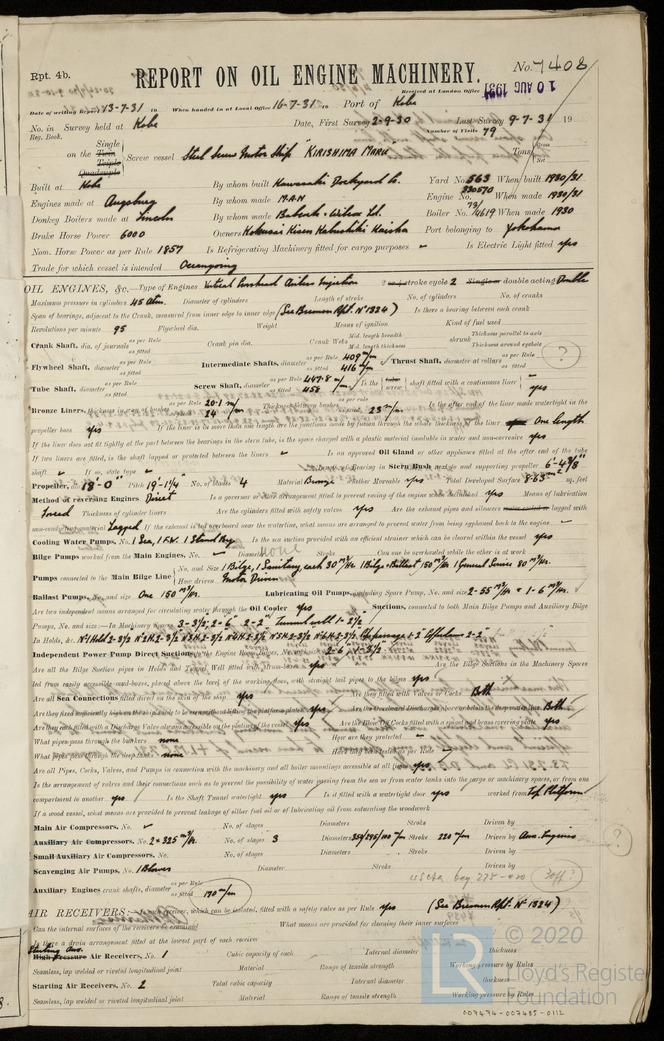 Rpt. 4b.
REPORT ON OIL ENGINE MACHINERY.
No. 7408
Received at London Office 10 AUG 1931
Date of writing Report 13-7-31 19 When handed in at Local Office 16-7-31 19 Port of Kobe
No. in Survey held at Kobe Date, First Survey 2-9-30 Last Survey 9-7-31 19
Reg. Book. Number of Visits 79
Single
on the Twin Triple Quadruple Screw vessel Steel Screw Motor Ship "KIRISHIMA MARU" Tons Gross Net
Built at Kobe By whom built Kawasaki Dockyard Co. Yard No. 563 When built 1930/31
Engines made at Augsburg By whom made M.A.N Engine No. 230570 When made 1930/31
Donkey Boilers made at Lincoln By whom made Babcock & Wilcox Ld. Boiler No. 79/14619 When made 1930
Brake Horse Power 6000 Owners Kokusai Kisen Kabushiki Kaisha Port belonging to Yokohama
Nom. Horse Power as per Rule 1857 Is Refrigerating Machinery fitted for cargo purposes Is Electric Light fitted yes
Trade for which vessel is intended Oceangoing
OIL ENGINES, &c.—Type of Engines Vertical 2 stroke cycle 2 Single or double acting Double
Maximum pressure in cylinders 45 Atm. Diameter of cylinders Length of stroke No. of cylinders No. of cranks
Span of bearings, adjacent to the Crank, measured from inner edge to inner edge (See Bremen Rpt. No 1324) Is there a bearing between each crank
Revolutions per minute 95 Flywheel dia. Weight Means of ignition Kind of fuel used
Crank Shaft, dia. of journals as per Rule as fitted Crank pin dia. Crank Webs Mid. length breadth Mid. length thickness shrunk Thickness parallel to axis Thickness around eyehole
Flywheel Shaft, diameter as per Rule as fitted Intermediate Shafts, diameter as per Rule 409 m/m as fitted 416 m/m Thrust Shaft, diameter at collars as per Rule as fitted ?
Tube Shaft, diameter as per Rule as fitted Screw Shaft, diameter as per Rule 447.8 m/m as fitted 458 Is the tube screw shaft fitted with a continuous liner yes
Bronze Liners, thickness in way of bushes as per Rule 20.1 m/m as fitted 24 23 m/m Is the after end of the liner made watertight in the
propeller boss yes If the liner is in more than one length are the junctions made by fusion through the whole thickness of the liner One length
If the liner does not fit tightly at the part between the bearings in the stern tube, is the space charged with a plastic material insoluble in water and non-corrosive yes
If two liners are fitted, is the shaft lapped or protected between the liners Is an approved Oil Gland or other appliance fitted at the after end of the tube
shaft If so, state type Length of bearing in Stern Bush next to and supporting propeller 6'-4 7/8"
Propeller, dia. 18'-0" Pitch 19'-1 1/4" No. of blades 4 Material Bronze whether Moveable yes Total Developed Surface 8.63 m2 sq. feet
Method of reversing Engines Direct Is a governor or other arrangement fitted to prevent racing of the engine when declutched yes Means of lubrication
Forced Thickness of cylinder liners Are the cylinders fitted with safety valves yes Are the exhaust pipes and silencers lagged with
non-conducting material Lagged If the exhaust is led overboard near the waterline, what means are arranged to prevent water from being syphoned back to the engine
Cooling Water Pumps, No. 1 Sea, 1 F.W. 1 Stand By Is the sea suction provided with an efficient strainer which can be cleared within the vessel yes
Bilge Pumps worked from the Main Engines, No. Diameter none Stroke Can one be overhauled while the other is at work
Pumps connected to the Main Bilge Line No. and Size 1 Bilge, 1 Sanitary, each 30 m3/Hr. 1 Bilge & Ballast 150 m3/Hr 1 General Service 80 m3/Hr.
How driven Motor Driven
Ballast Pumps, No. and size One 150 m3/Hr. Lubricating Oil Pumps, including Spare Pump, No. and size 2-55 m3/Hr & 1-6 m3/Hr.
Are two independent means arranged for circulating water through the Oil Cooler yes Suctions, connected to both Main Bilge Pumps and Auxiliary Bilge
Pumps, No. and size:—In Machinery 3-3 1/2", 2-6" 2-2" Tunnel well 1-2 1/2
In Holds, &c. No 1 Hold 2-3 1/2 No 2 H. 2-3 1/2 No 3 H. 2-3 1/2 No 4 H. 2-3 1/2 No 5 H. 2-3 1/2 No 6 H. 2-3 1/2
Independent Power Pump Direct Suctions to the Engine Room Bilges, 2-6", 1-3 1/2
Are all the Bilge Suction pipes in Holds and Tunnel Well fitted with strum boxes yes Are the Bilge Suctions in the Machinery Spaces
led from easily accessible mud-boxes, placed above the level of the working floor, with straight tail pipes to the bilges yes
Are all Sea Connections fitted direct on the skin of the ship yes Are they fitted with Valves or Cocks Both
Are they fixed sufficiently high on the ship's side to be seen without lifting the platform plates yes Are the Overboard Discharges above or below the deep water line Both
Are they each fitted with a Discharge Valve always accessible on the plating of the vessel yes Are the Blow Off Cocks fitted with a spigot and brass covering plate yes
What pipes pass through the bunkers none How are they protected
What pipes pass through the deep tanks none Have they been tested as per Rule
Are all Pipes, Cocks, Valves, and Pumps in connection with the machinery and all boiler mountings accessible at all times yes
Is the arrangement of valves and their connections such as to prevent the possibility of water passing from the sea or from water tanks into the cargo or machinery spaces, or from one
compartment to another yes Is the Shaft Tunnel watertight yes Is it fitted with a watertight door yes worked from Top Platform
If a wood vessel, what means are provided to prevent leakage of either fuel oil or of lubricating oil from saturating the woodwork
Main Air Compressors, No. No. of stages Diameters Stroke Driven by
Auxiliary Air Compressors, No. 2 & 325 m3/Hr. No. of stages 3 Diameters 350/295/100 m/m Stroke 220 m/m Driven by Aux. Engines ?
Small Auxiliary Air Compressors, No. No. of stages Diameters Stroke Driven by
Scavenging Air Pumps, No. 1 Blower Diameter Stroke Driven by
Auxiliary Engines crank shafts, diameter as per Rule as fitted 190 m/m
AIR RECEIVERS:— receiver, which can be isolated, fitted with a safety valve as per Rule yes (See Bremen Rpt. No 1324)
Can the internal surfaces of the receivers be examined What means are provided for cleaning their inner surfaces
Is there a drain arrangement fitted at the lowest part of each receiver
High Pressure Air Receivers, No. 1 Cubic capacity of each Internal diameter Thickness
Seamless, lap welded or riveted longitudinal joint Material Range of tensile strength Working pressure by Rules
Starting Air Receivers, No. 2 Total cubic capacity Internal diameter thickness
Seamless, lap welded or riveted longitudinal joint Material Range of tensile strength Working pressure by Rules
© 2020
Lloyd's Register
Foundation
007474-007485-0112